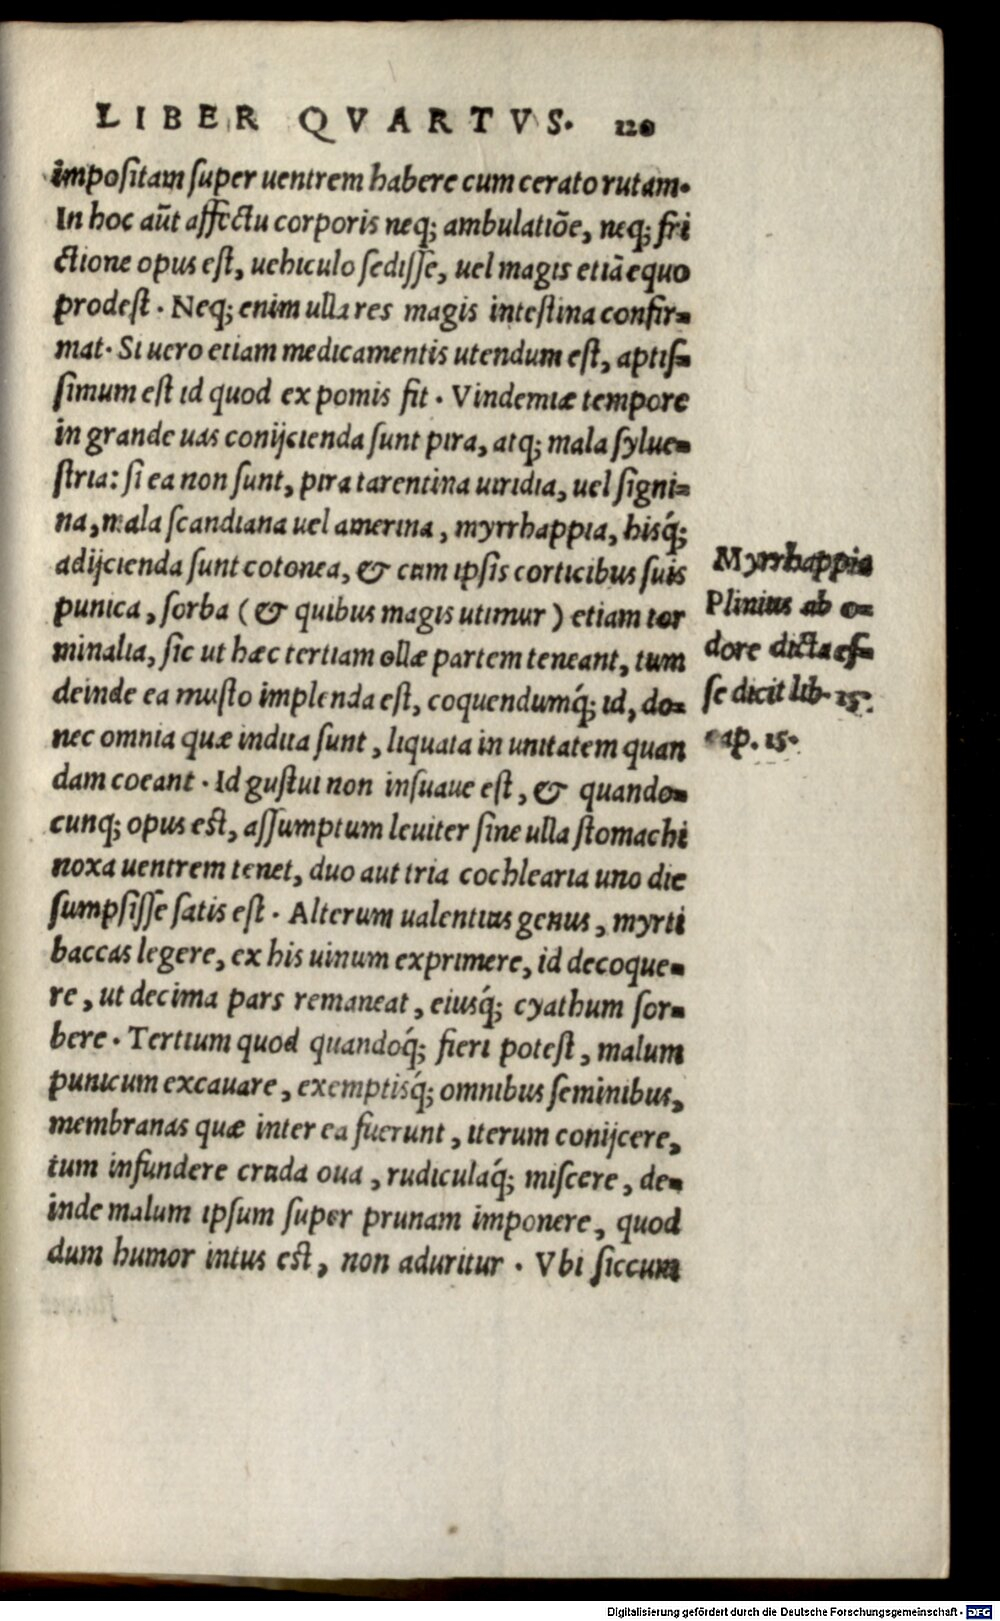 LIBER QVARTVS. 120
impositam super uentrem habere cum cerato rutam.
In hoc aūt affectu corporis neq; ambulatiōe, neq; fri
ctione opus est, uehiculo sedisse, uel magis etiā equo
prodest. Neq; enim ulla res magis intestina confir-
mat. Si uero etiam medicamentis utendum est, aptis-
simum est id quod ex pomis fit. Vindemiæ tempore
in grande uas conijcienda sunt pira, atq; mala sylue-
stria: si ea non sunt, pira tarentina uiridia, uel signi-
na, mala scandiana uel amerina, myrrhappia, hisq́;
adijcienda sunt cotonea, & cum ipsis corticibus suis
punica, sorba (& quibus magis utimur) etiam tor
minalia, sic ut hæc tertiam ollæ partem teneant, tum
deinde ea musto implenda est, coquendumq́; id, do-
nec omnia quæ indita sunt, liquata in unitatem quan
dam coeant. Id gustui non insuaue est, & quando-
cunq; opus est, assumptum leuiter sine ulla stomachi
noxa uentrem tenet, duo aut tria cochlearia uno die
sumpsisse satis est. Alterum ualentius genus, myrti
baccas legere, ex his uinum exprimere, id decoque-
re, ut decima pars remaneat, eiusq́; cyathum sor-
bere. Tertium quod quandoq́; fieri potest, malum
punicum excauare, exemptisq́; omnibus seminibus,
membranas quæ inter ea fuerunt, iterum conijcere,
tum infundere cruda oua, rudiculaq́; miscere, de-
inde malum ipsum super prunam imponere, quod
dum humor intus est, non aduritur. Vbi siccum
Myrrhappia
Plinius ab o-
dore dicta es-
se dicit lib. 15.
cap. 15.
Digitalisierung gefördert durch die Deutsche Forschungsgemeinschaft - DFG